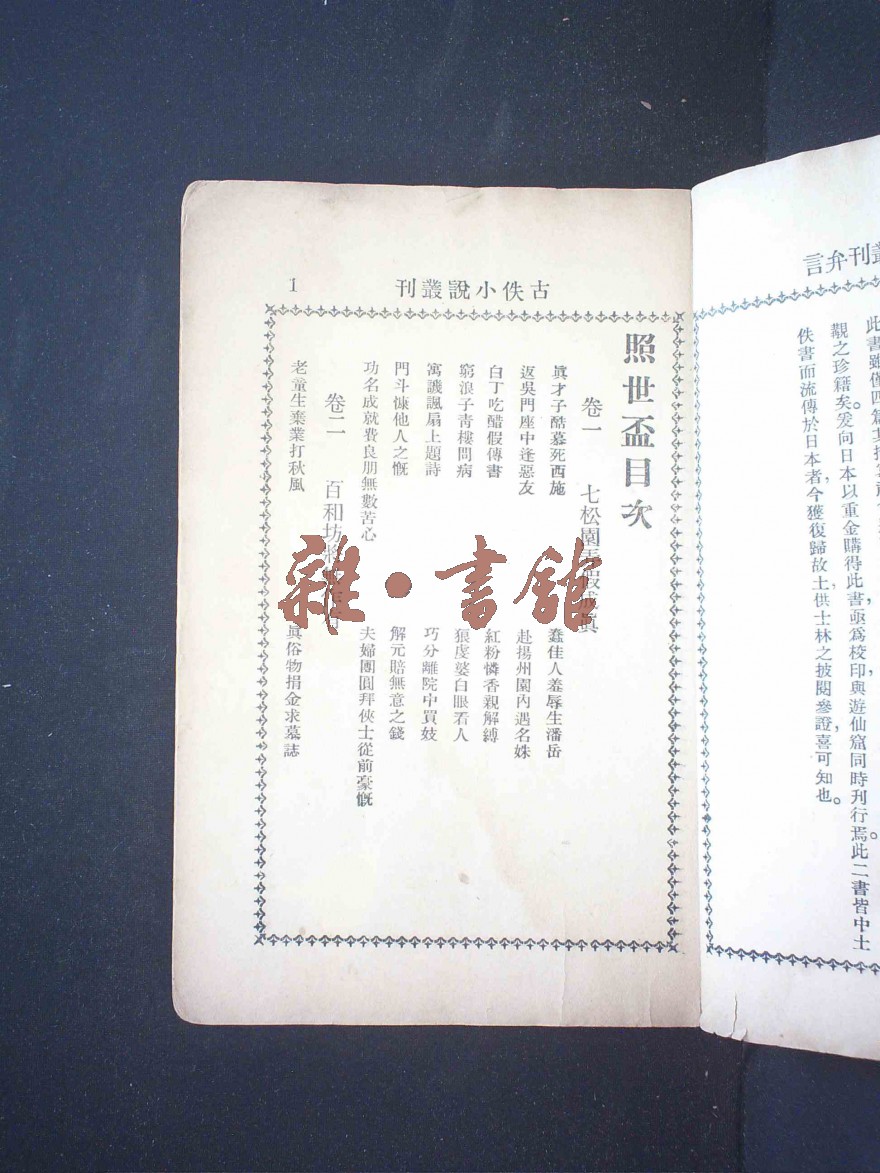 叢刊弁言
觀之珍籍矣。爰向日本以重金購得此書，亟爲校印，與遊仙窟同時刊行焉。此二書皆中土
佚書而流傳於日本者，今獲復歸故土，供士林之披閱參證，喜可知也。
古佚小說叢刊
1
照世盃目次
卷一 七松園弄假成眞
眞才子酷慕死西施 蠢佳人羞辱生潘岳
返吳門座中逢惡友 赴揚州園內遇名姝
白丁吃醋假傳書 紅粉憐香親解縛
窮浪子靑樓問病 狠虔婆白眼看人
寓譏諷扇上題詩 巧分離院中買妓
門斗慷他人之慨 解元賠無意之錢
功名成就費良朋無數苦心 夫婦團圓拜俠士從前豪慨
卷二 百和坊將
老童生棄業打秋風 眞俗物捐金求墓誌
雜·書館